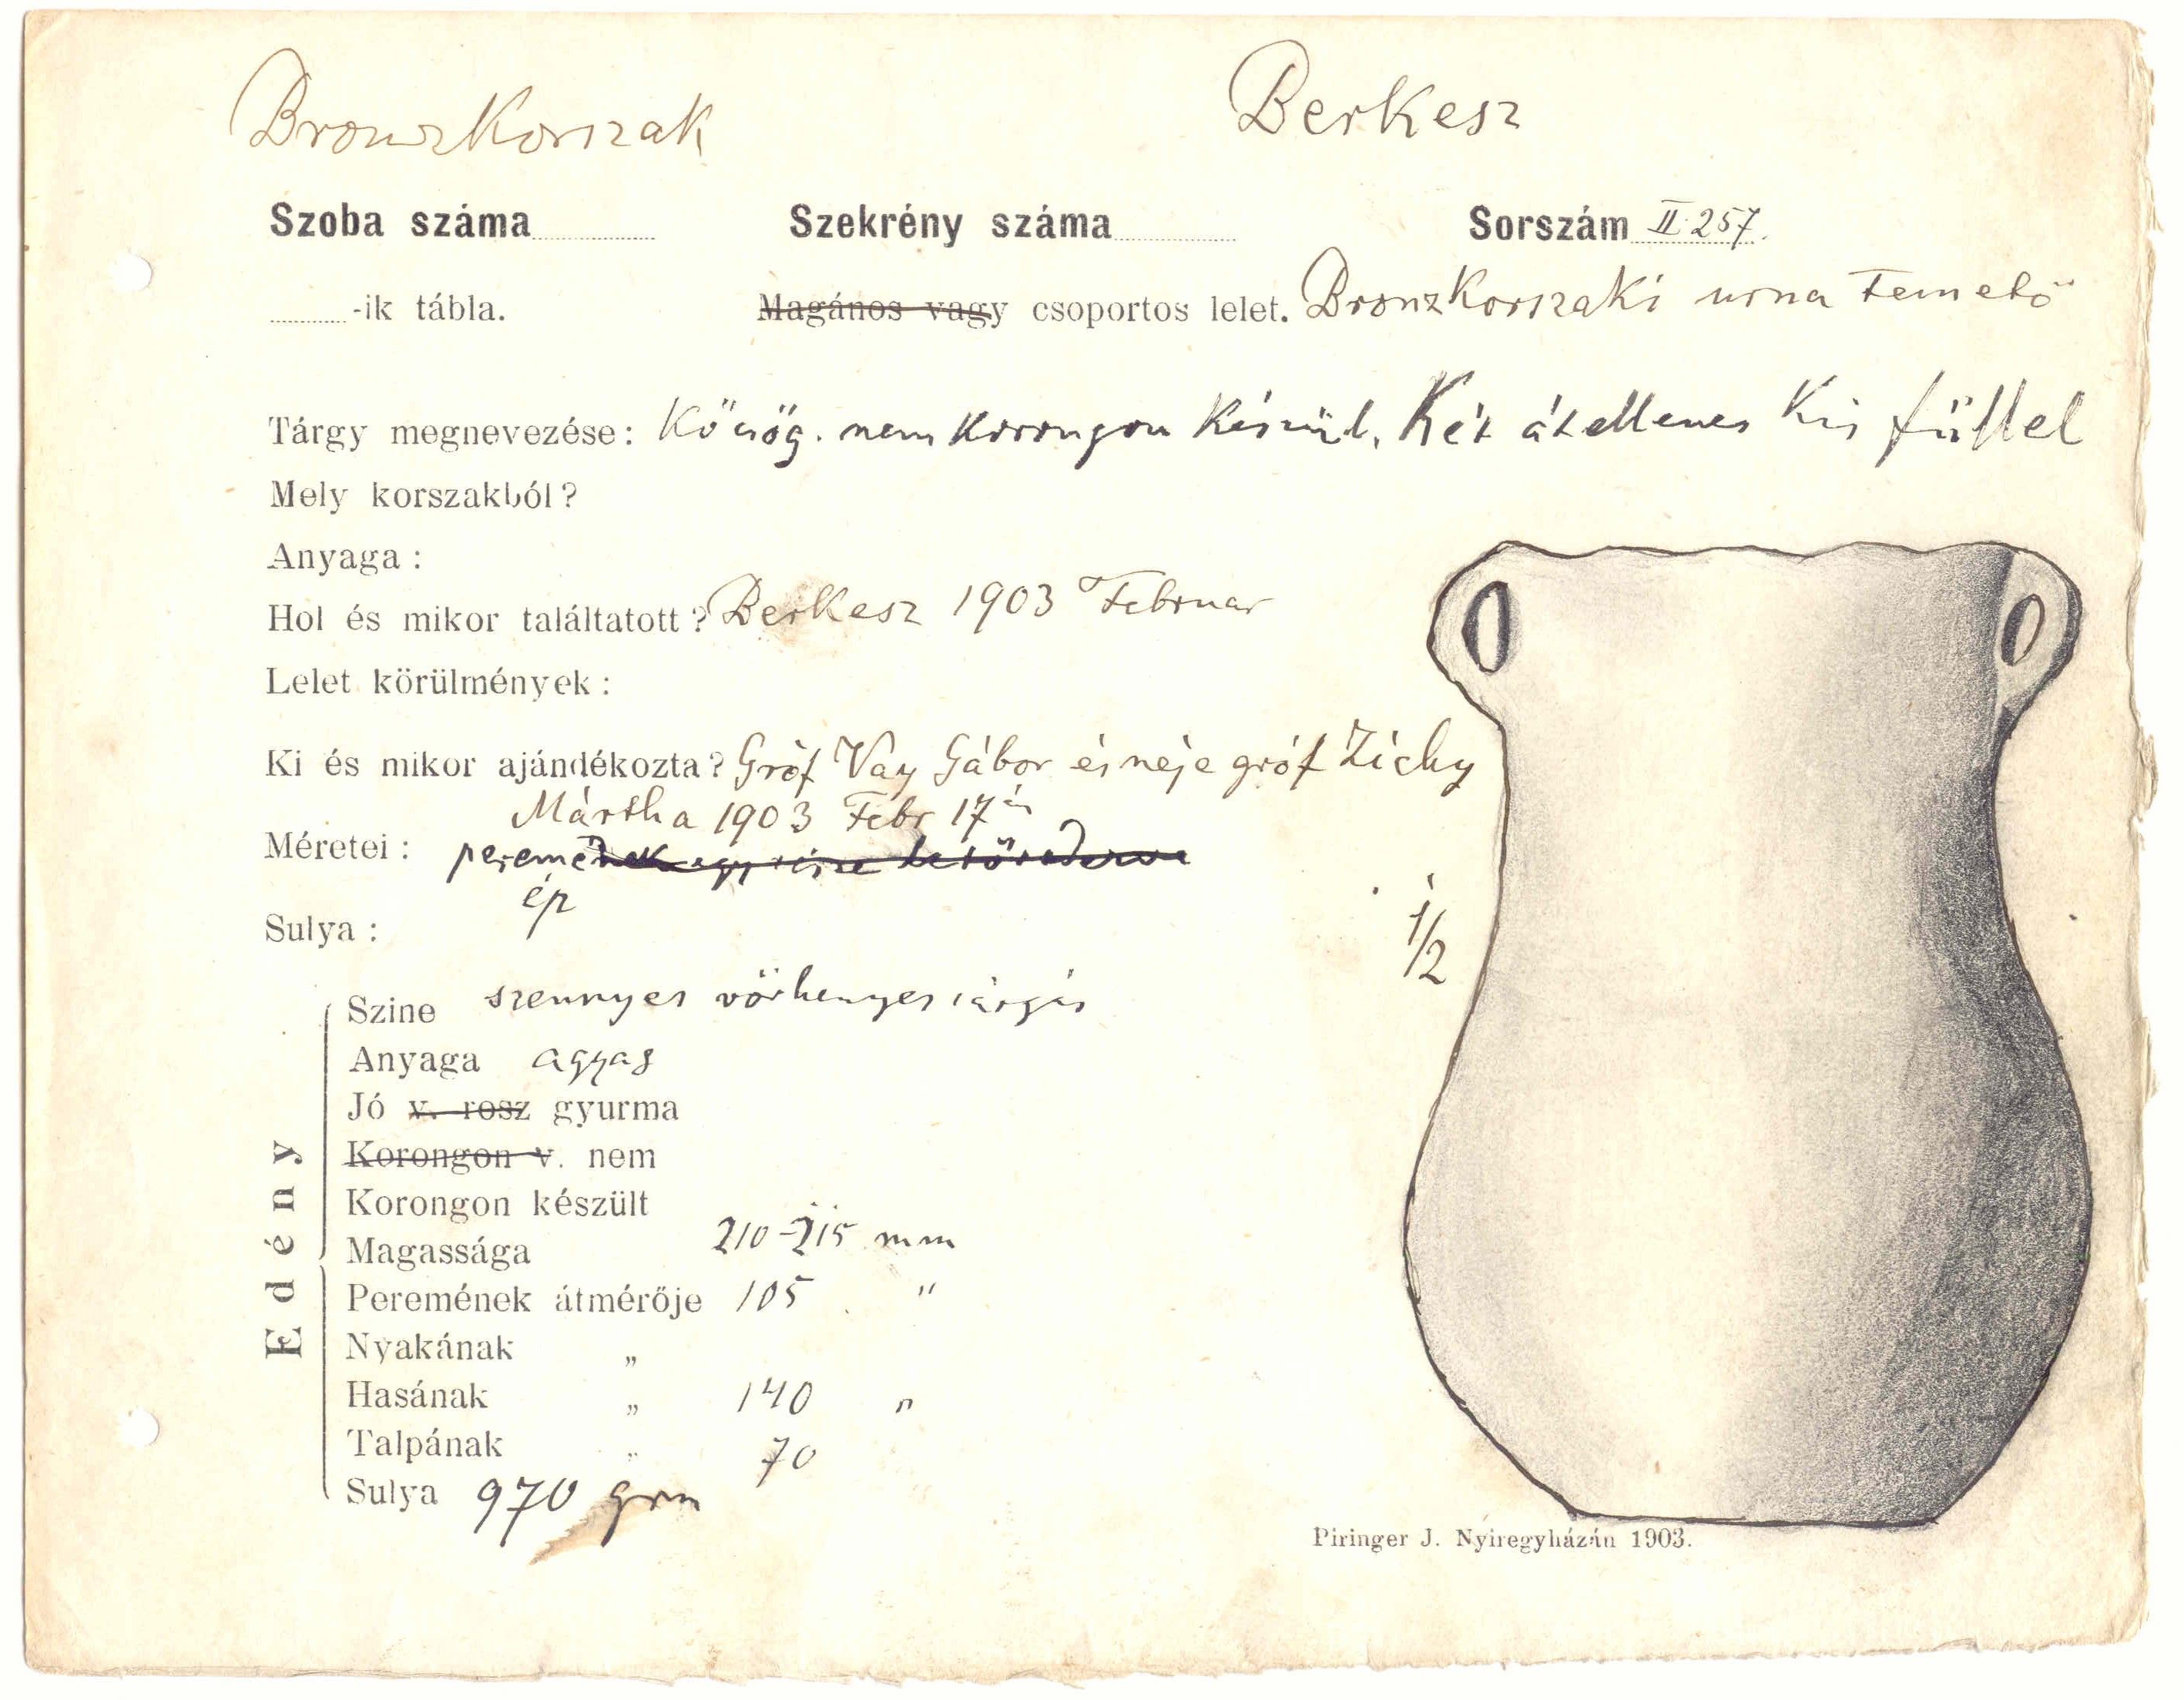 Bronzkorszak
Berkesz
Szoba száma Szekrény száma Sorszám II. 257.
-ik tábla. Magános vagy csoportos lelet. Bronzkorszaki urna temető
Tárgy megnevezése: Köcsög. nem korongon készült. Két átellenes kis füllel
Mely korszakból?
Anyaga:
Hol és mikor találtatott? Berkesz 1903 Februar
Lelet körülmények:
Ki és mikor ajándékozta? Gróf Vay Gábor és neje gróf Zichy
Mártha 1903 Febr 17én
Méretei: peremének egy része letöredezve
ép
Sulya:
1/2
Edény
Szine szennyes vörhenyes sárgás
Anyaga agyag
Jó v. rosz gyurma
Korongon v. nem
Korongon készült
Magassága 210-215 mm
Peremének átmérője 105 "
Nyakának „
Hasának „ 140 "
Talpának „ 70
Sulya 970 grm
Piringer J. Nyiregyházán 1903.